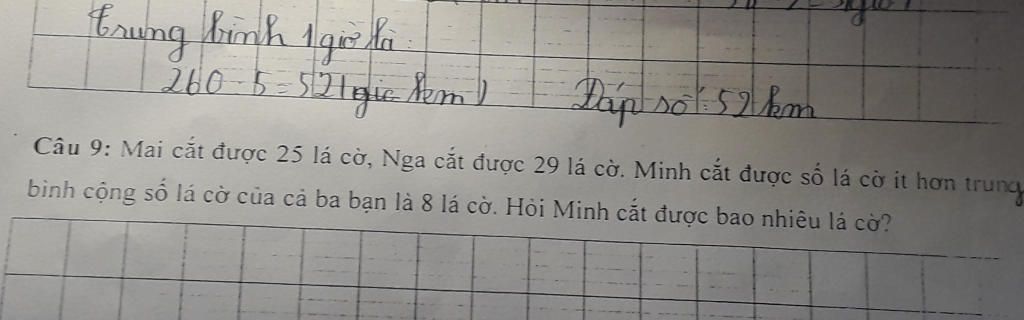 trung bình 1 giờ là:
260 - 5 = 52 (km)
Đáp số: 52 km
Câu 9: Mai cắt được 25 lá cờ, Nga cắt được 29 lá cờ. Minh cắt được số lá cờ ít hơn trung
bình cộng số lá cờ của cả ba bạn là 8 lá cờ. Hỏi Minh cắt được bao nhiêu lá cờ?